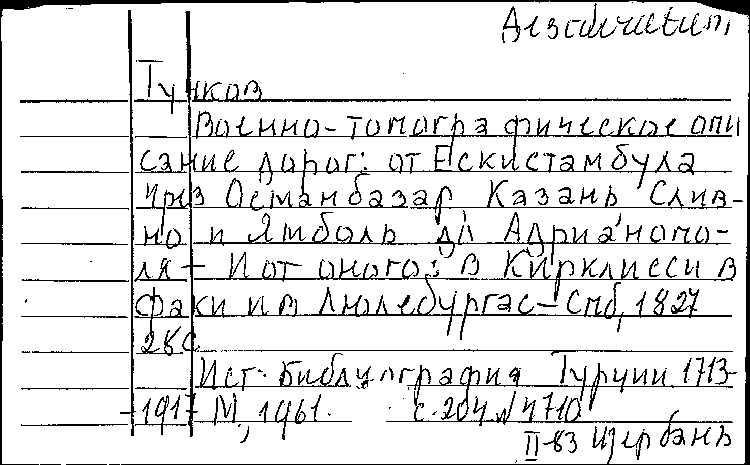 Тучков
Военно-топографическое опи
сание дорог: от Ескистамбула
чрез Османбазар Казань Слив-
но и Ямболь до Адрианопо-
ля - И от оного: в Кирклисси в
факи и в Люлебургас - Спб, 1827
28с
Ист: Библиография Турции 1713-
-1917 М, 1961. с. 204 №4710
II-83 Щербань